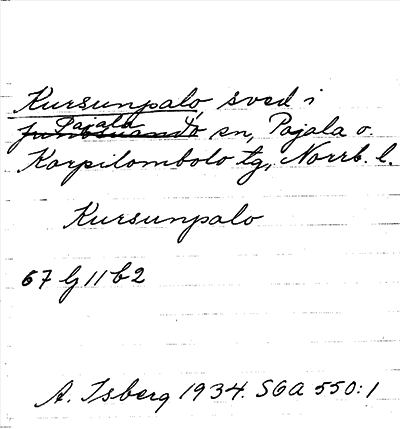 Kursunpalo, sved i
Pajala
Junosuando sn, Pajala o.
Korpilombolo tg, Norrb. l.
Kursunpalo
67 G 11 b 2
A. Isberg 1934. SOA 550:1